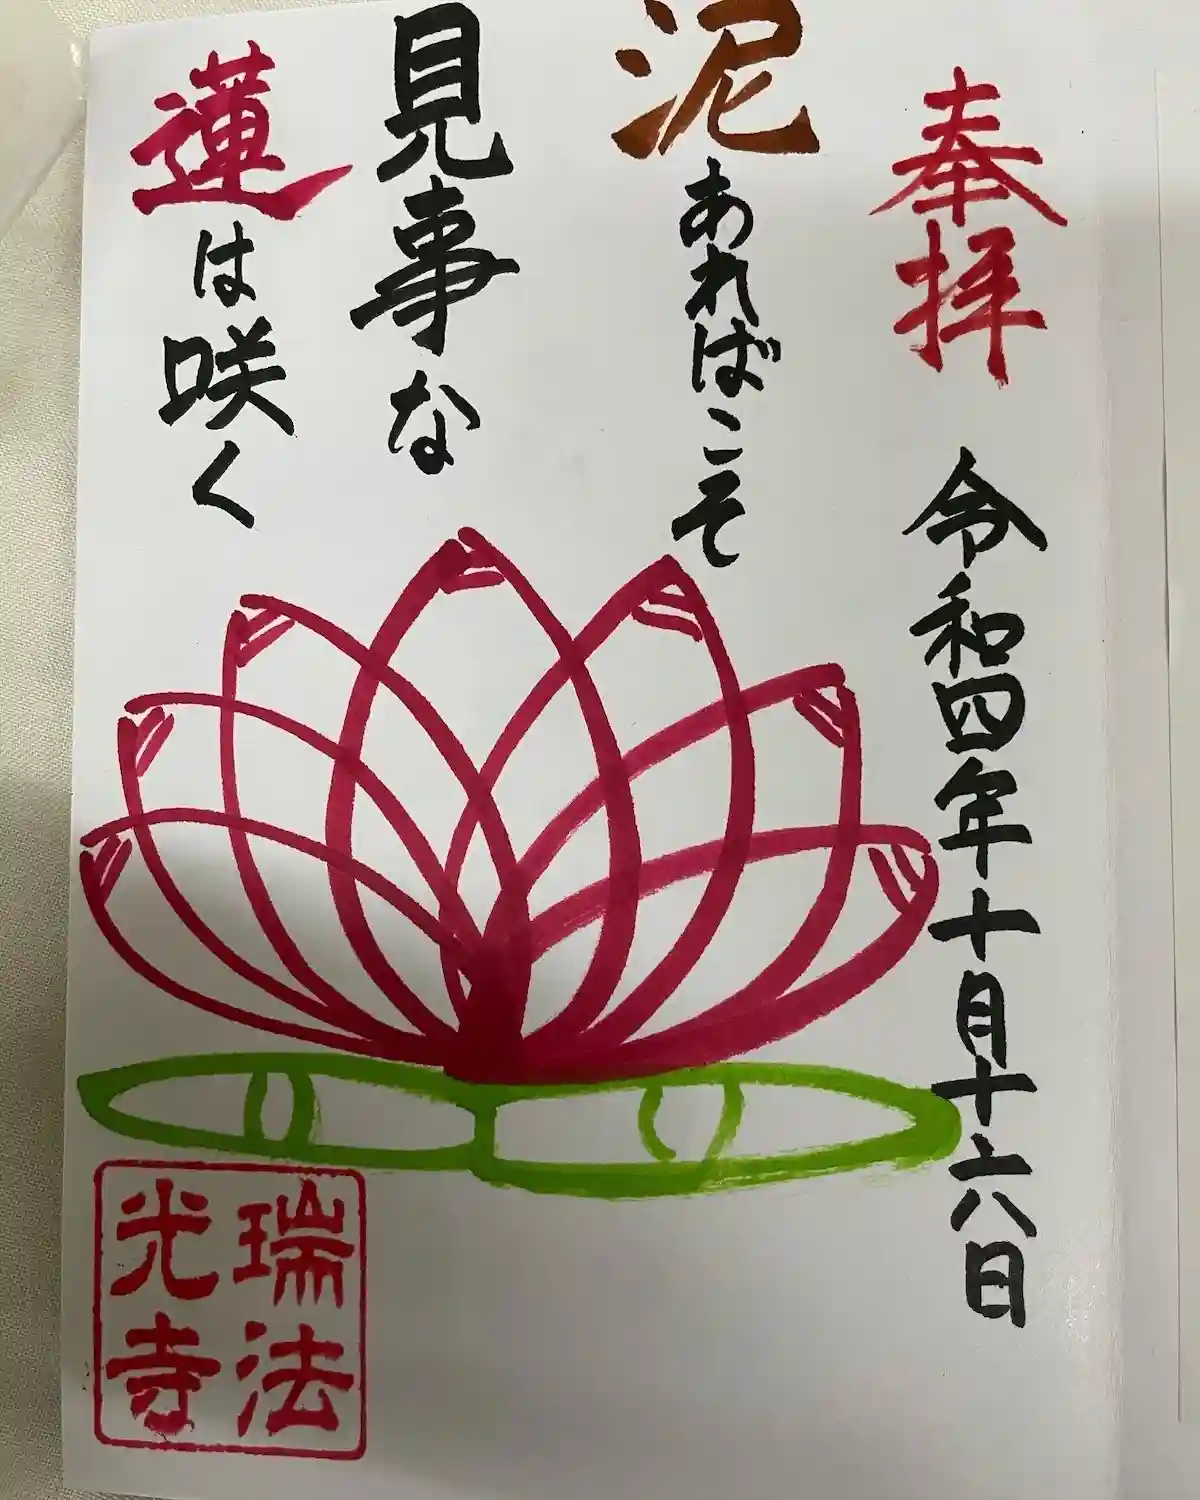 奉拝
令和四年十月十六日
泥あればこそ
見事な
蓮は咲く
瑞法
光寺